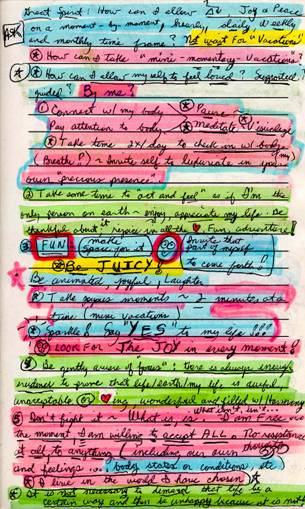 Great Spirit: How can I allow Joy & Peace
ASK
on a moment-by moment, hourly, daily, weekly
and monthly time frame? Not wait for "Vacations"
How can I take "mini" momentary - vacations?
How can I allow myself to feel loved? Supported,
guided? By me?
① Connect w/ my body Pause
Pay attention to body Meditate Visualize
Take time 3x/day to check in w/ body
(Breathe!) ~ Invite self to luxuriate in your
own precious presence."
② Take some time to "act and feel" as if I'm the
only person on earth ~ enjoy, appreciate my life. Be
thankful about it, rejoice in all the Fun adventure!
③ FUN make space for it Invite that part of myself
to come forth!
Be JUICY!
Be animated, joyful, Laughter
Take joyous moments ~ 2 minutes at a
time (mini vacations)
Sparkle! Say "YES" to my life!!!
LOOK FOR THE JOY in every moment!
"Be gently aware of focus": There is always enough
evidence to prove that life/earth/my life is awful,
unacceptable or ing wonderful and filled w/ Harmony
what isn't...
Don't fight it ~ What is, is I am Free in
the moment I am willing to accept ALL. No resistance
at all to anything (including our own thoughts
and feelings... body states or conditions, etc
I live in the world I have chosen
It is not necessary to demand that life be a
certain way and then be unhappy because it is not